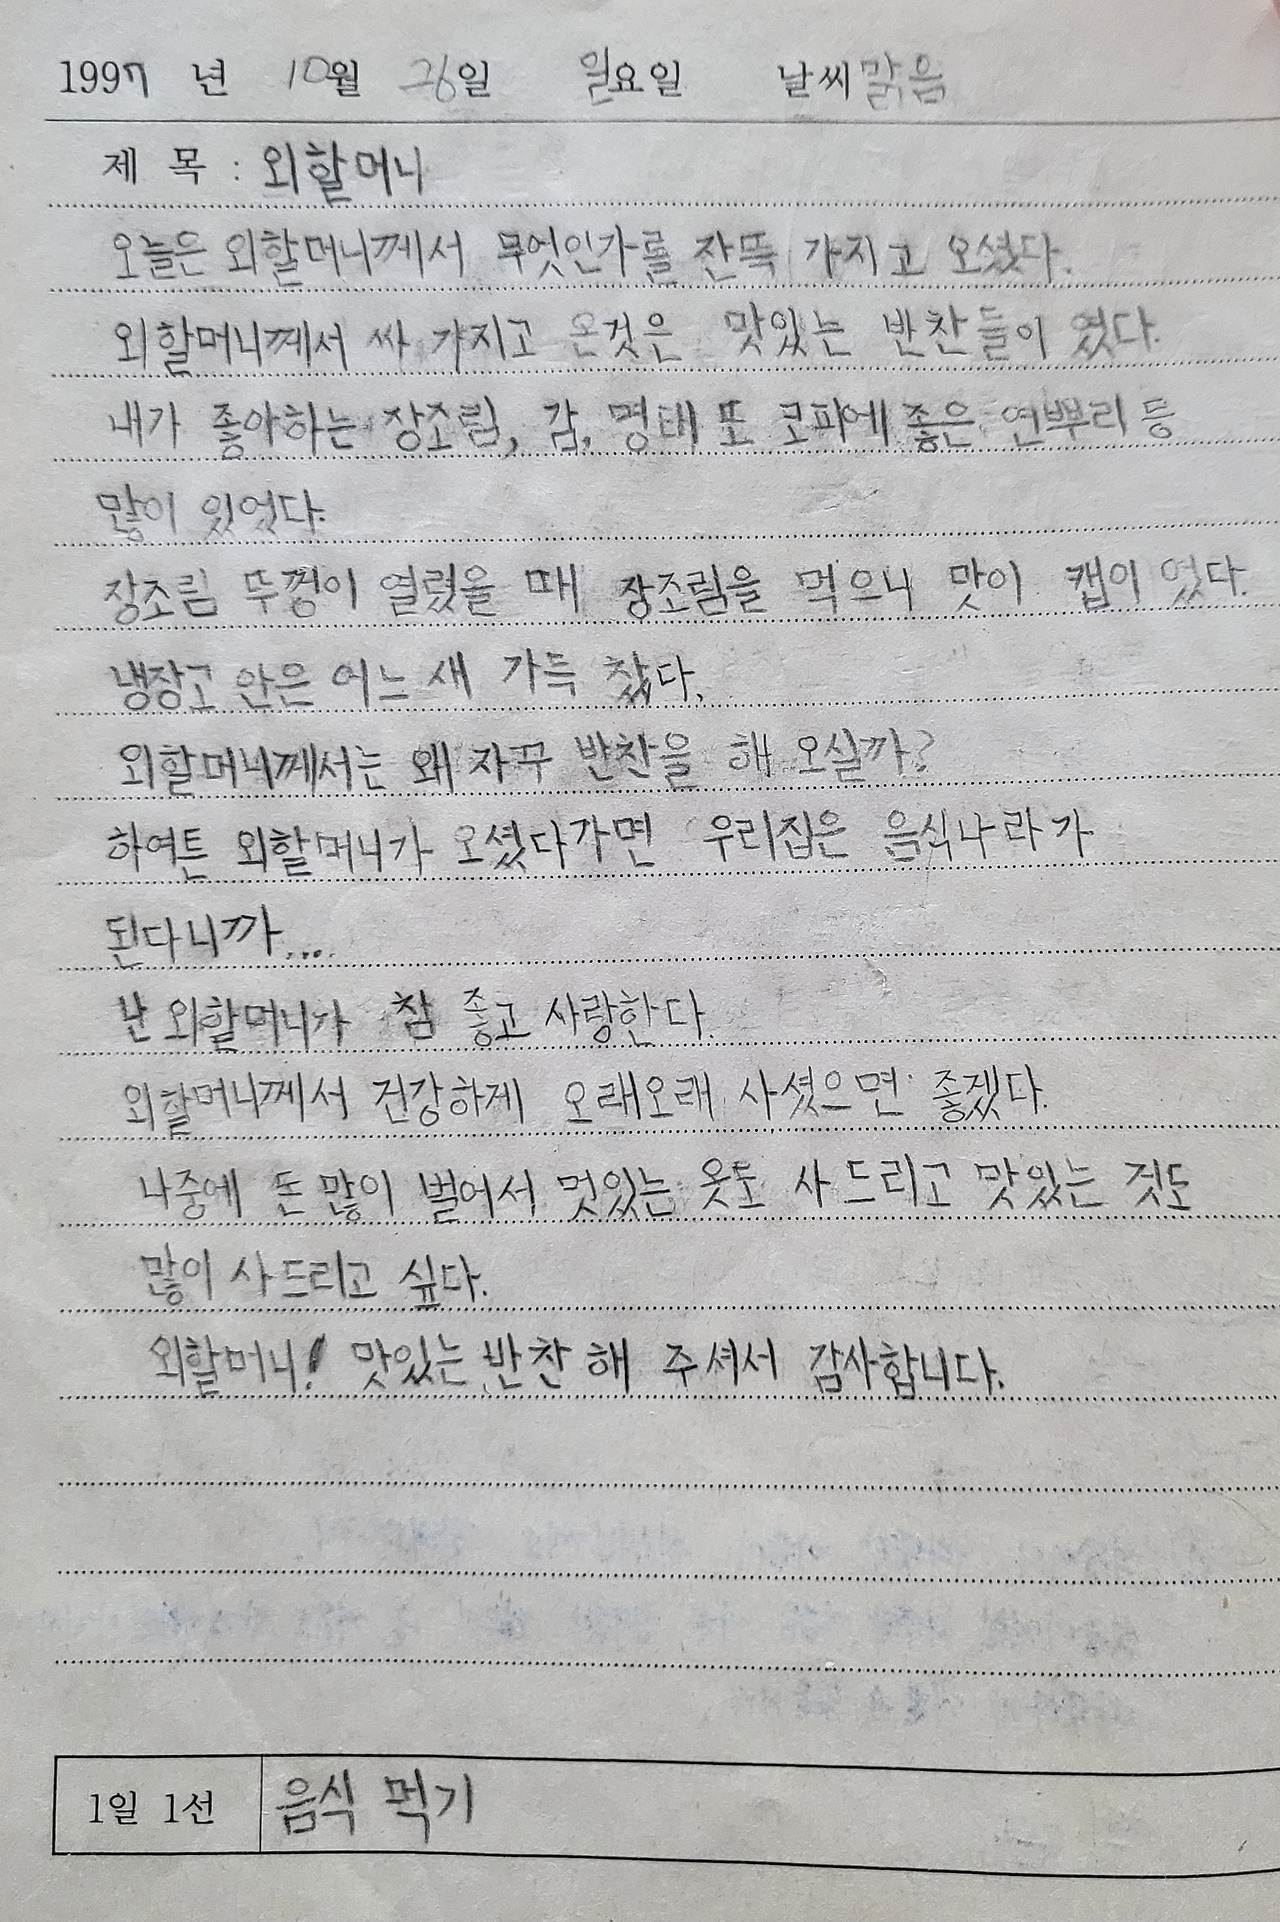 1997 년 10월 26일 일요일 날씨 맑음
제 목 : 외할머니
오늘은 외할머니께서 무엇인가를 잔뜩 가지고 오셨다.
외할머니께서 싸 가지고 온것은 맛있는 반찬들이 였다.
내가 좋아하는 장조림, 감, 명태 또 코피에 좋은 연뿌리 등
많이 있었다.
장조림 뚜껑이 열렸을 때 장조림을 먹으니 맛이 캡이 었다.
냉장고 안은 어느 새 가득 찼다.
외할머니께서는 왜 자꾸 반찬을 해 오실까?
하여튼 외할머니가 오셨다가면 우리집은 음식나라가
된다니까....
난 외할머니가 참 좋고 사랑한다.
외할머니께서 건강하게 오래오래 사셨으면 좋겠다.
나중에 돈 많이 벌어서 멋있는 옷도 사 드리고 맛있는 것도
많이 사 드리고 싶다.
외할머니! 맛있는 반찬 해 주셔서 감사합니다.
1일 1선 음식 먹기